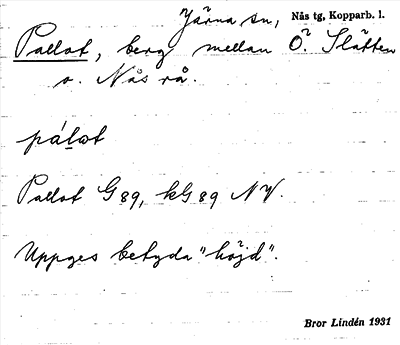 Järna sn, Nås tg, Kopparb. l.
Pallot, berg mellan Ö. Slätten
o. Nås rå.
pálot
Pallot G 89, kG 89 NV.
Uppges betyda "höjd".
Bror Lindén 1931